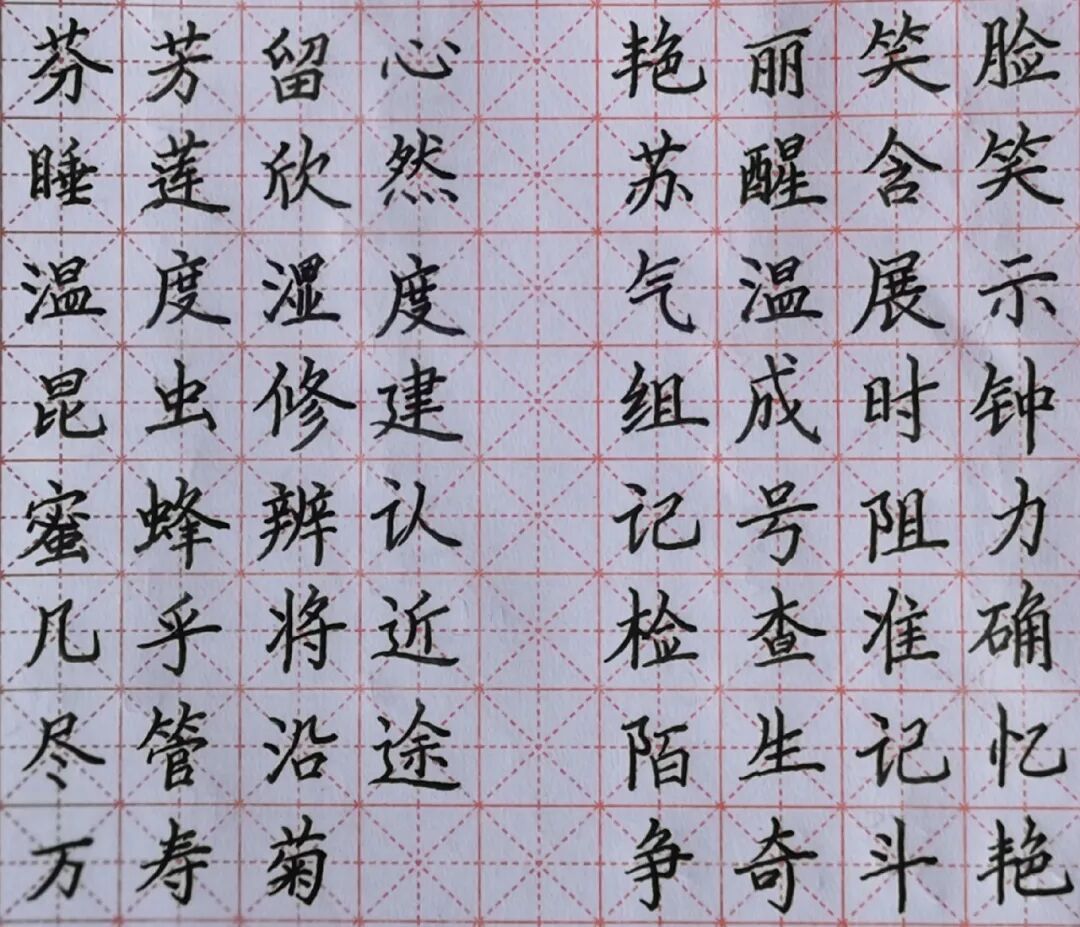 芬芳留心 艳丽笑脸
睡莲欣然 苏醒含笑
温度湿度 气温展示
昆虫修建 组成时钟
蜜蜂辨认 记号阻力
几乎将近 检查准确
尽管沿途 陌生记忆
万寿菊 争奇斗艳